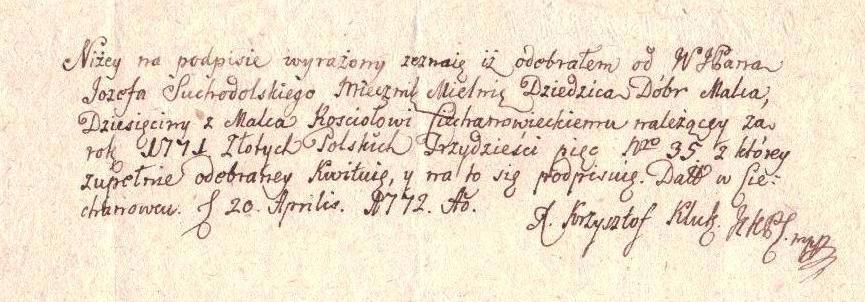 Niżey na podpisie wyrażony zeznaię iż odebrałem od W JPana
Jozefa Suchodolskiego Miecznik Mielnic Dziedzica Dóbr Malca,
Dziesięciny z Malca Kosciołowi Ciechanowieckiemu należącey za
rok 1771 Złotych Polskich Trzydzieści pięc Nro 35 z którey
zupełnie odebraney Kwituię, y na to się podpisuię. Datt w Cie-
chanowcu. 20. Aprilis. 1772. Ao.
X. Krzysztof Kluk mpp